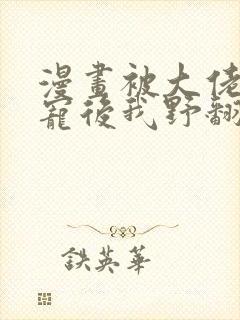 漫畫被大佬
寵後我野翻
鉄英華